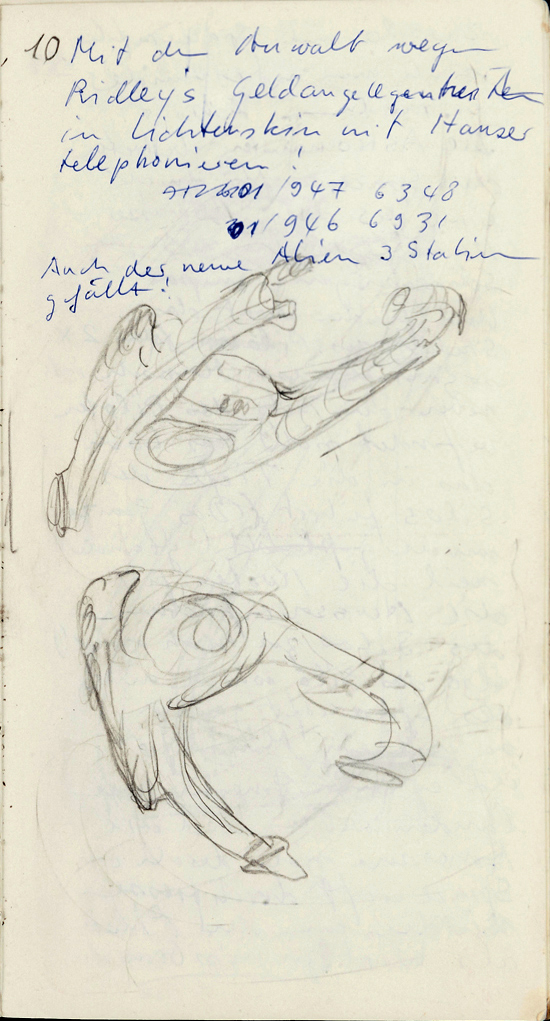 10 Mit dem Anwalt wegen
Ridley's Geldangelegenheiten
in Lichtenstein mit Hauser
telephonieren!
01/947 6348
01/946 6931
Auch der neue Alien 3 Station
gefällt!